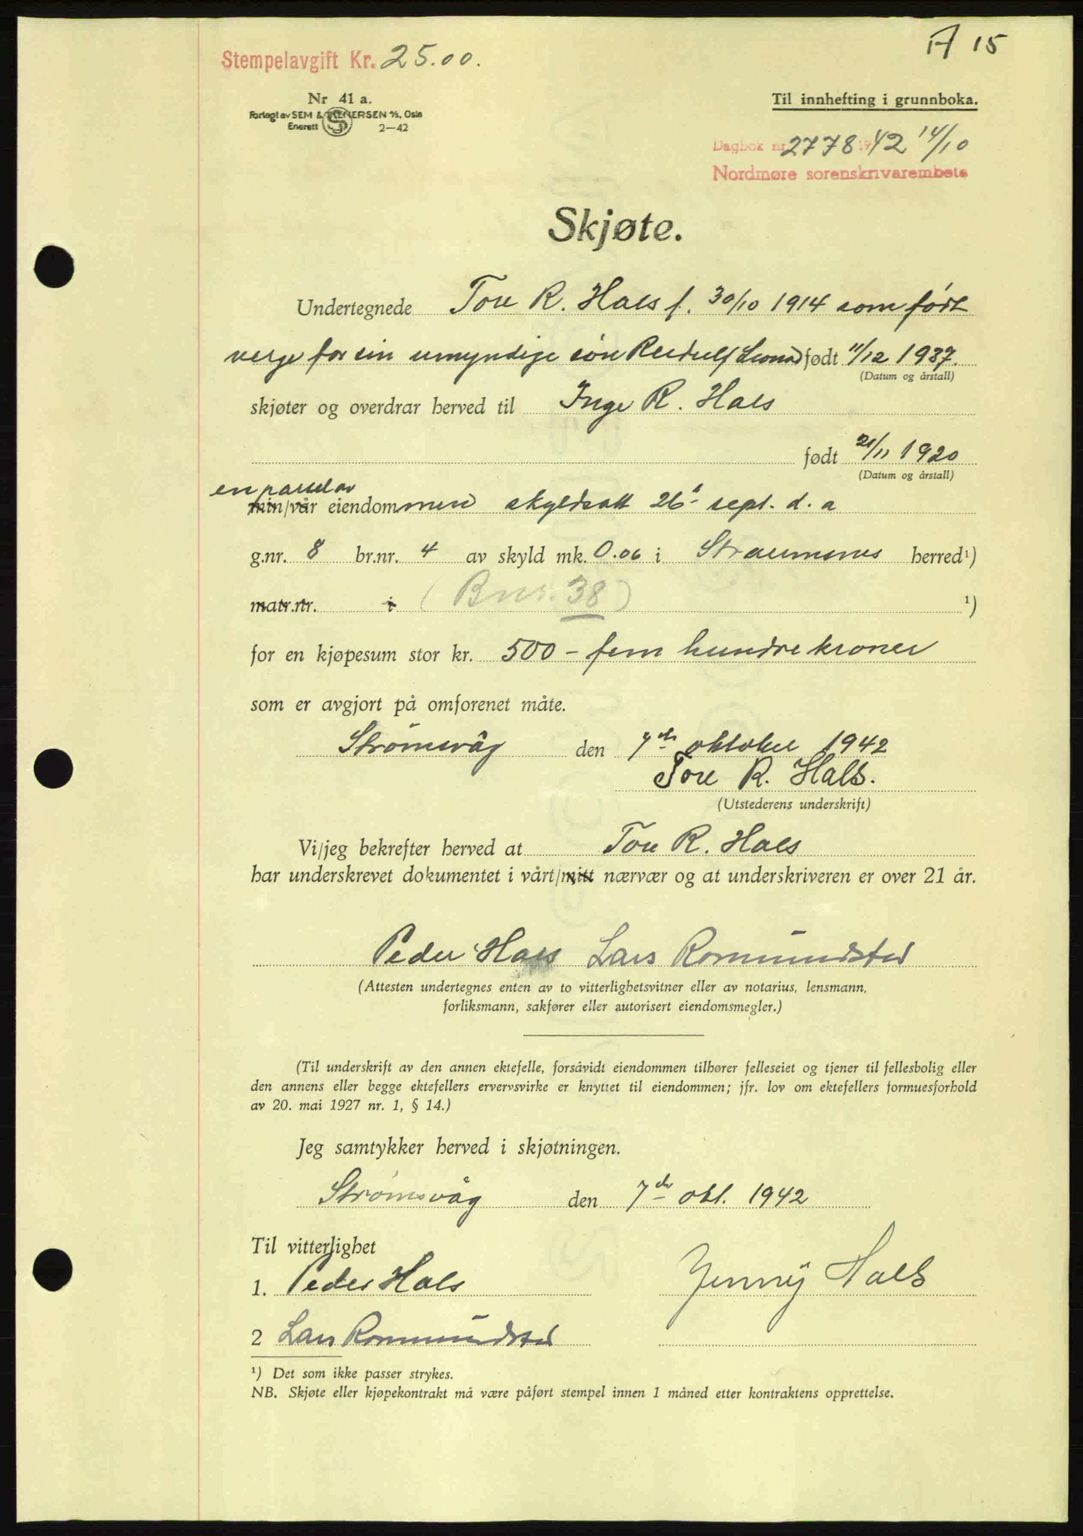 A 15
Stempelavgift Kr. 25.00.
Nr 41 a.
Forlagt av SEM & STENERSEN A/S, Oslo
Enerett 2—42
Til innhefting i grunnboka.
Dagbok nr. 2778 1942 14/10
Nordmøre sorenskrivarembete
Skjøte.
Undertegnede Tore R. Hals f. 30/10 1914 som født
verge for sin umyndige søn født 11/12 1937.
(Datum og årstall)
skjøter og overdrar herved til Inge R. Hals
født 21/11 1920
(Datum og årstall)
en parselav
min/vår eiendommen skyldsatt 26de sept. d. a
g.nr. 8 br.nr. 4 av skyld mk. 0.06 i Straumsnes herred¹)
matr.nr. i (Bnr. 38) ¹)
for en kjøpesum stor kr. 500 – fem hundre kroner
som er avgjort på omforenet måte.
Strømsvåg den 7de oktober 1942
Tore R. Hals.
(Utstederens underskrift)
Vi/jeg bekrefter herved at Tore R. Hals
har underskrevet dokumentet i vårt/mitt nærvær og at underskriveren er over 21 år.
Peder Hals Lars Romundstad
(Attesten undertegnes enten av to vitterlighetsvitner eller av notarius, lensmann,
forliksmann, sakfører eller autorisert eiendomsmegler.)
(Til underskrift av den annen ektefelle, forsåvidt eiendommen tilhører felleseiet og tjener til fellesbolig eller
den annens eller begge ektefellers ervervsvirke er knyttet til eiendommen; jfr. lov om ektefellers formuesforhold
av 20. mai 1927 nr. 1, § 14.)
Jeg samtykker herved i skjøtningen.
Strømsvåg den 7de okt. 1942
Til vitterlighet
1. Peder Hals Jenny Hals
2 Lars Romundstad
¹) Det som ikke passer strykes.
NB. Skjøte eller kjøpekontrakt må være påført stempel innen 1 måned etter kontraktens opprettelse.